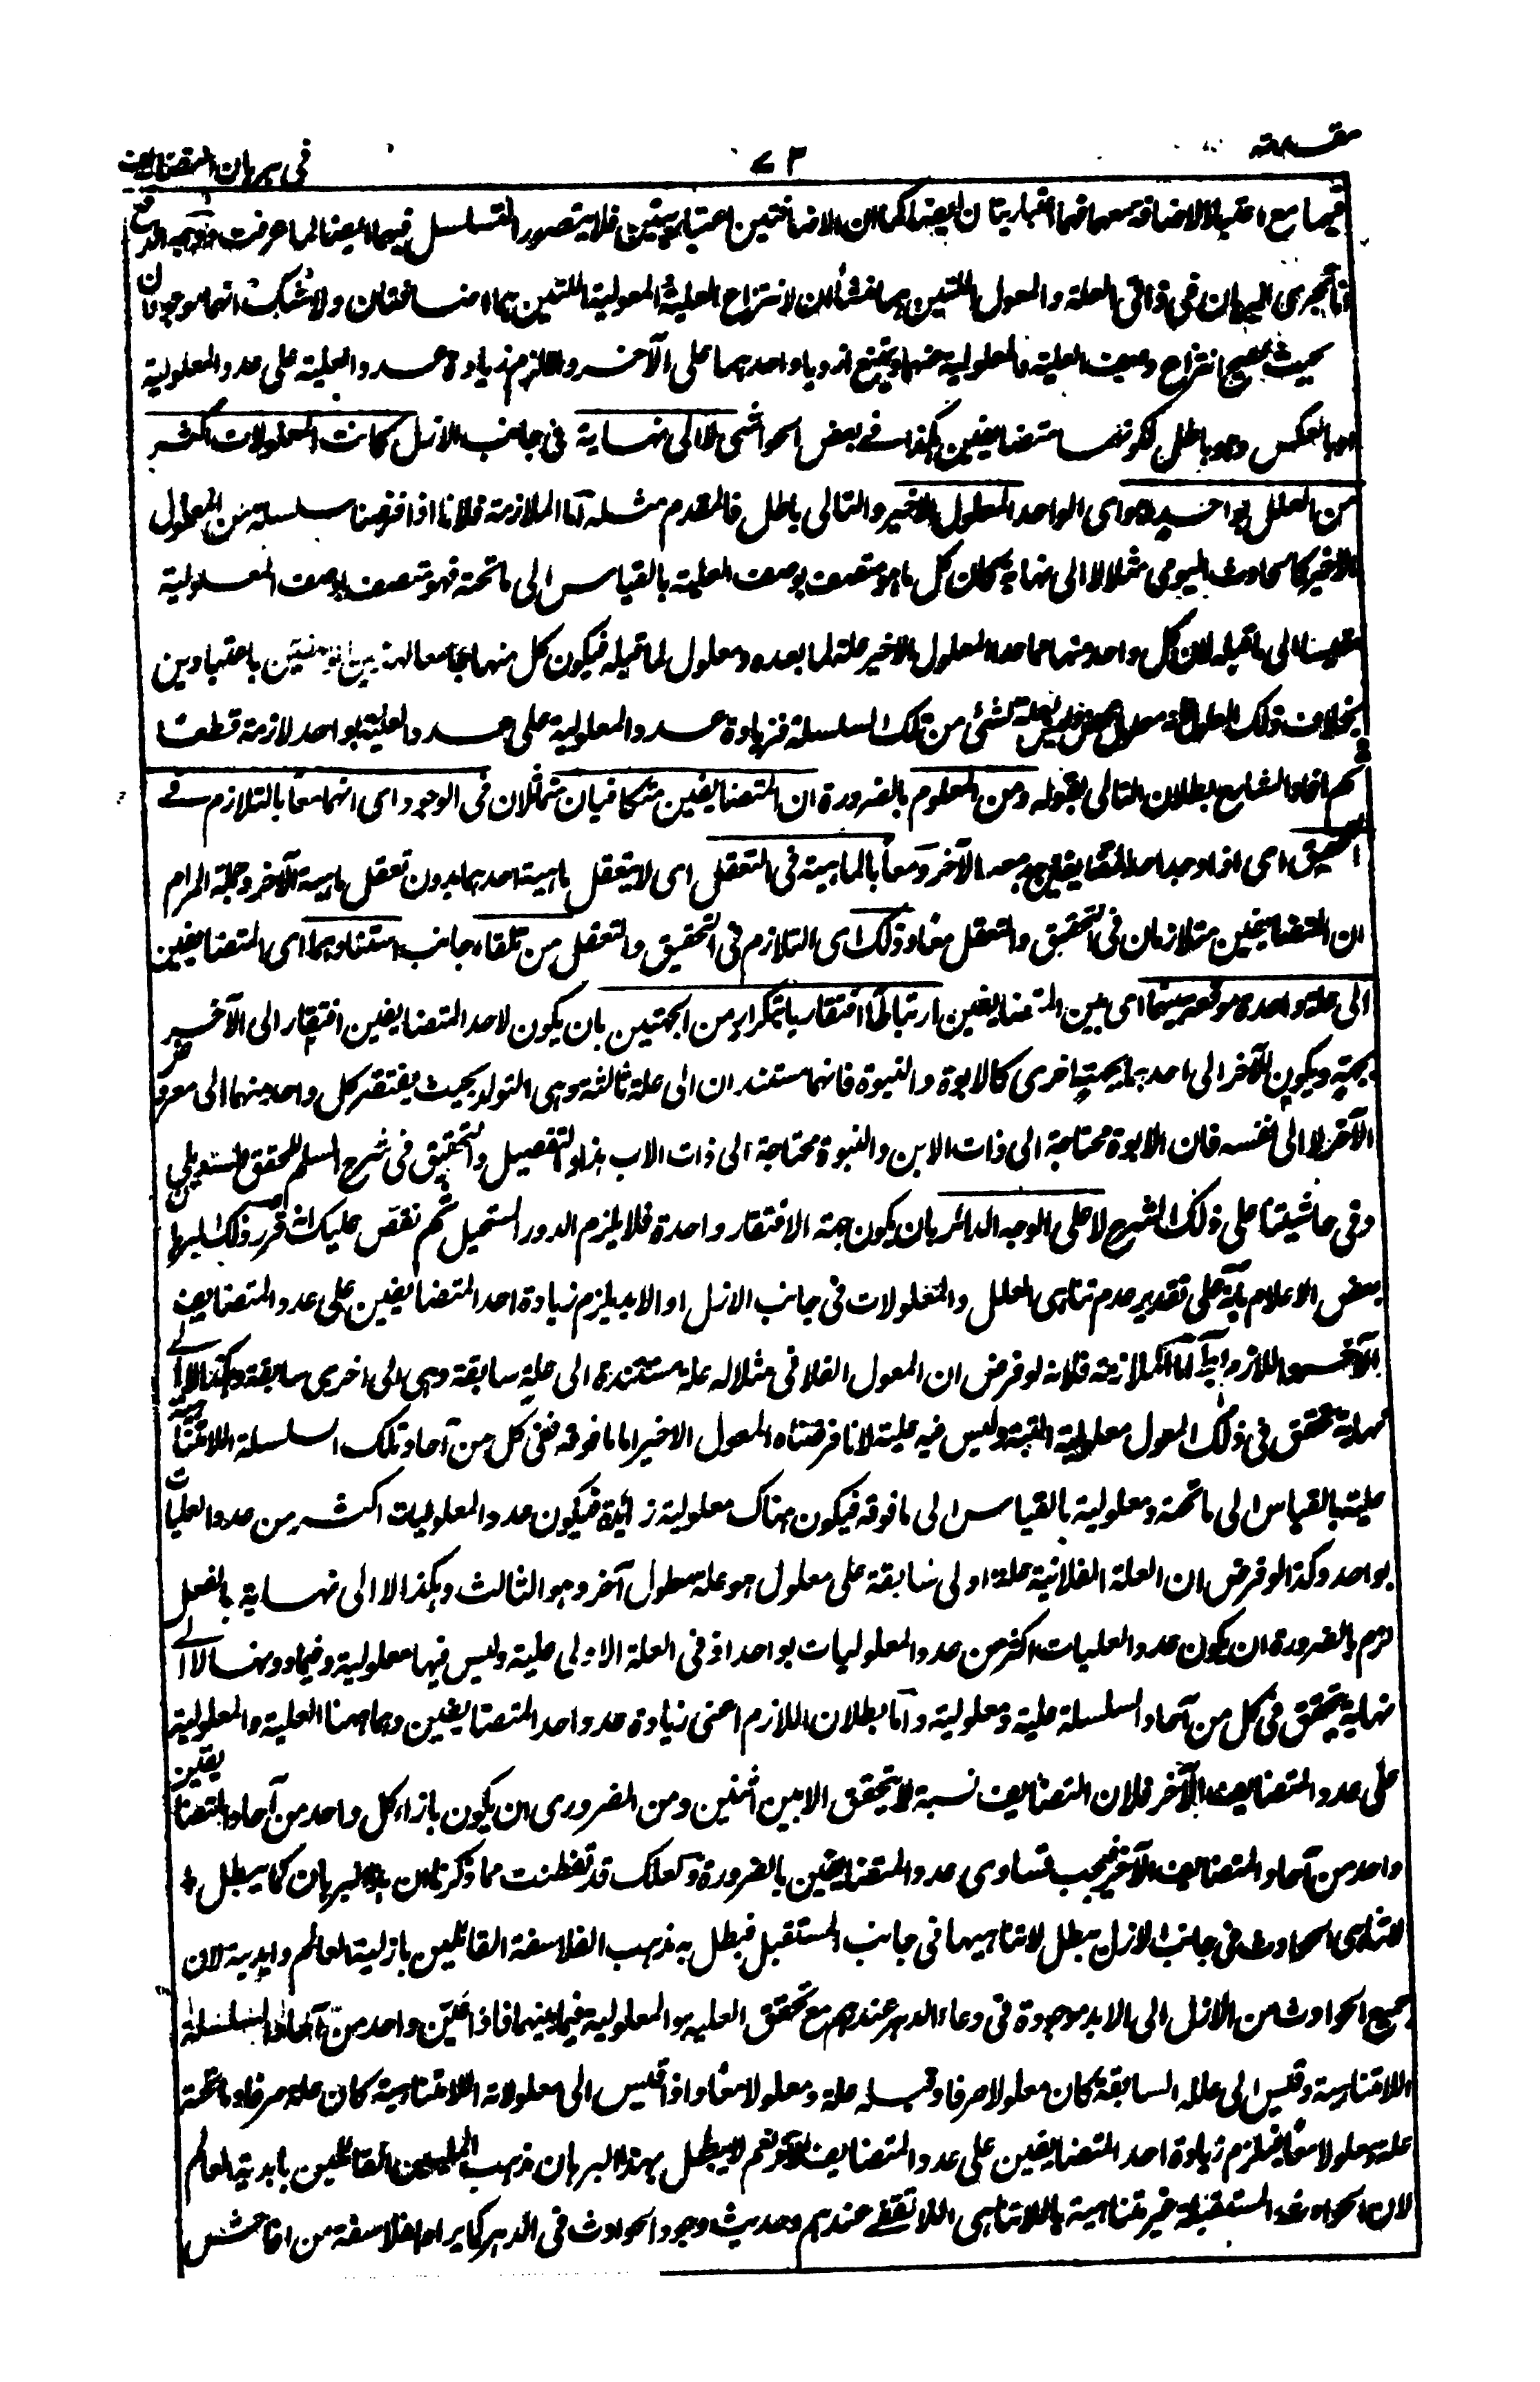 مقدمة
٧٣
في برهان التضايف
فيهما مع اعتبار الاضافة معهما فهما اعتباريتان ايضا كما ان الاضافتين اعتباريتين فلا يتصور التسلسل فيهما ايضا لما عرفت وجه الدفع
انا نجري البرهان في ذاتي العلة والمعلول اللتين هما منشأان لانتزاع العلية والمعلولية اللتين هما اضافتان ولا شك انهما موجودتان
بحيث يصح انتزاع وصف العلية والمعلولية عنهما ويمتنع ازدياد احدهما على الآخر واللازم زيادة عدد العلية على عدد المعلولية
او بالعكس وهو باطل لكونهما متضايفين هكذا في بعض الحواشي لا الى نهاية في جانب الازل كانت المعلولات اكثر
من العلل بواحد وهو اي الواحد المعلول الاخير والتالي باطل فالمقدم مثله اما الملازمة فلانا اذا فرضنا سلسلة من المعلول
الاخير كالحادث اليومي مثلا لا الى نهاية كان كل ما هو متصف بوصف العلية بالقياس الى ما تحته فهو متصف بوصف المعلولية
مقيسا الى ما قبله لان كل واحد منها ما عدا المعلول الاخير علة لما بعده ومعلول لما قبله فيكون كل منها جامعا لهذين الوصفين باعتبارين
بخلاف ذلك المعلول فانه معلول محض وليس بعلة لشئ من تلك السلسلة فزيادة عدد المعلولية على عدد العلية بواحد لازمة قطعا
ثم افاد الشارع بطلان التالي بقوله ومن المعلوم بالضرورة ان المتضايفين متكافيان متماثلان في الوجود اي انهما معا بالتلازم في
التحقق اي اذا وجد احد المتضايفين وجد معه الآخر ومعا بالماهية في التعقل اي لا يتعقل ماهية احدهما بدون تعقل ماهية الآخر وجملة المرام
ان المتضايفين متلازمان في التحقق والتعقل معا وذلك اي التلازم في التحقيق والتعقل من تلقاء جانب استنادهما اي المتضايفين
الى علة واحدة موقعة بينهما اي بين المتضايفين ارتباطا افتقاريا بتكرار من الجهتين بان يكون لاحد المتضايفين افتقار الى الآخر
بجهة ويكون للآخر الى احدهما بجهة اخرى كالابوة والبنوة فانهما مستندان الى علة ثالثة وهي التولد بحيث يفتقر كل واحد منهما الى معروض
الآخر لا الى نفسه فان الابوة محتاجة الى ذات الابن والبنوة محتاجة الى ذات الاب هذا والتفصيل والتحقيق في شرح السلم للمحقق السنديلي
وفي حاشيتنا على ذلك الشرح لا على الوجه الدائر بان يكون جهة الافتقار واحدة فلا يلزم الدور المستحيل ثم نقص عليك انه قد قرر ذلك البرهان
بعض الاعلام بانه على تقدير عدم تناهي العلل والمعلولات في جانب الازل او الابد يلزم زيادة احد المتضايفين على عدد المتضايف
الآخر واللازم باطل اما الملازمة فلانه لو فرض ان المعلول الفلاني مثلا له علة مستندة الى علة سابقة وهي الى اخرى سابقة وهكذا لا الى
نهاية تحقق في ذلك المعلول معلولية البتة وليس فيه علية لانا فرضناه المعلول الاخير اما ما فوقه ففي كل من آحاد تلك السلسلة اللامتناهية
علية بالقياس الى ما تحته ومعلولية بالقياس الى ما فوقه فيكون هناك معلولية زائدة فيكون عدد المعلوليات اكثر من عدد العليات
بواحد وكذا لو فرض ان العلة الفلانية علة اولى سابقة على معلول هو علة معلول آخر وهو الثالث وهكذا لا الى نهاية بالفعل
لزم بالضرورة ان يكون عدد العليات اكثر من عدد المعلوليات بواحد اذ في العلة الاولى علية وليس فيها معلولية وفيما دونها لا الى
نهاية يتحقق في كل من آحاد السلسلة علية ومعلولية واما بطلان اللازم اعني زيادة عدد احد المتضايفين وهما ههنا العلية والمعلولية
على عدد المتضايف الآخر فلان التضايف نسبة لا يتحقق الا بين اثنين ومن الضروري ان يكون بازاء كل واحد من آحاد المتضايفين
واحد من آحاد المتضايف الآخر فيجب تساوي عدد المتضايفين بالضرورة ولعلك قد تفطنت مما ذكرنا ان هذا البرهان كما يبطل
لا تناهي الحوادث في جانب الازل يبطل لا تناهيها في جانب المستقبل فبطل به مذهب الفلاسفة القائلين بازلية العالم وابديته لان
جميع الحوادث من الازل الى الابد موجودة في وعاء الدهر عندهم مع تحقق العلية والمعلولية فيما بينهما فاذا عين واحد من آحاد السلسلة
اللامتناهية وقيس الى علله السابقة كان معلولا صرفا وقبله علة ومعلولا معا واذا قيس الى معلولاته اللامتناهية كان علة صرفا وما تحته
علة ومعلولا معا فيلزم زيادة احد المتضايفين على عدد المتضايف الآخر نعم لا يبطل بهذا البرهان مذهب المليين القائلين بابدية العالم
لان الحوادث المستقبلة غير متناهية باللاتناهي اللاتقفي عندهم وحديث وجود الحوادث في الدهر كما يراه الفلاسفة من افاحش